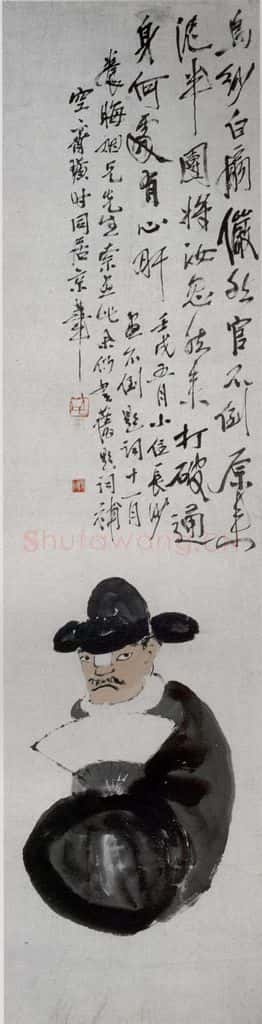 烏紗白扇儼然官不倒原来
泥半團將汝忽然来打破通
身何處有心肝
壬戌五月小住長沙
畫不倒題詞十一月
養晦姻兄先生索畫此
余仍書舊題詞補
空齊璜時同居京華
Shufawang.cn